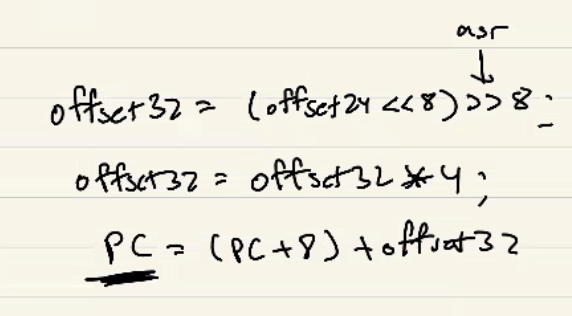 asr
offset32 = (offset24 << 8) >> 8;
offset32 = offset32 * 4;
PC = (PC+8) + offset32